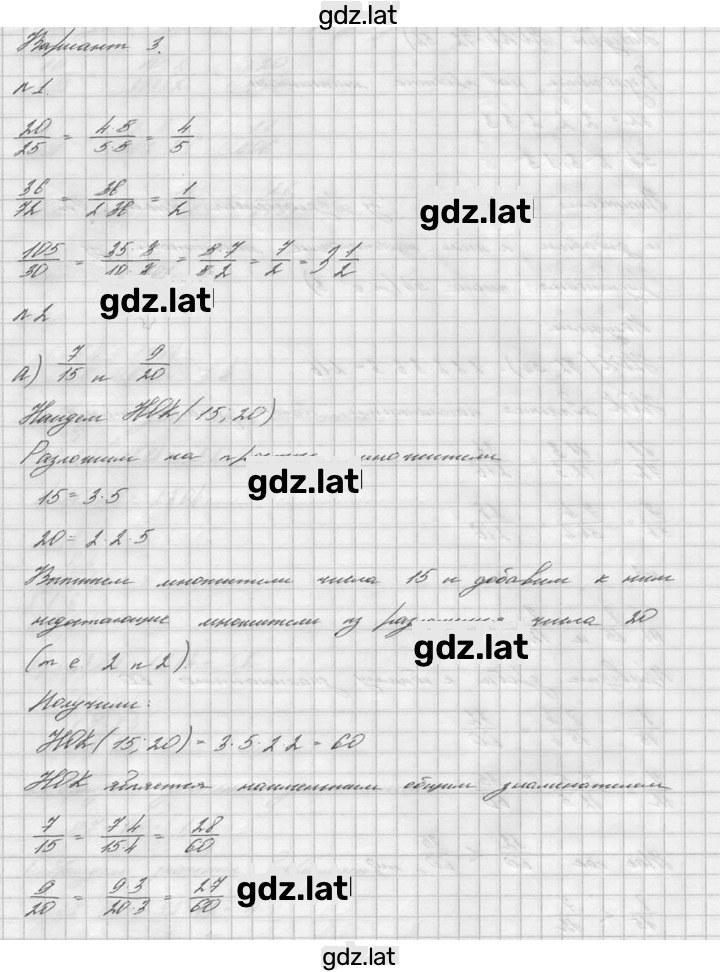 gdz.lat
Вариант 3.
n 1.
20/25 = 4·5/5·5 = 4/5
36/72 = 36/2·36 = 1/2
gdz.lat
105/30 = 35·3/10·3 = 5·7/5·2 = 7/2 = 3 1/2
gdz.lat
n 2
а) 7/15 и 9/20
Найдем НОК(15; 20)
Разложим на множители
gdz.lat
15 = 3·5
20 = 2·2·5
Выпишем множители числа 15 и добавим к ним
недостающие множители из числа 20
gdz.lat
(т е 2 и 2).
Получили:
НОК(15; 20) = 3·5·2·2 = 60
НОК является наименьшим общим знаменателем
7/15 = 7·4/15·4 = 28/60
9/20 = 9·3/20·3 = 27/60
gdz.lat
gdz.lat